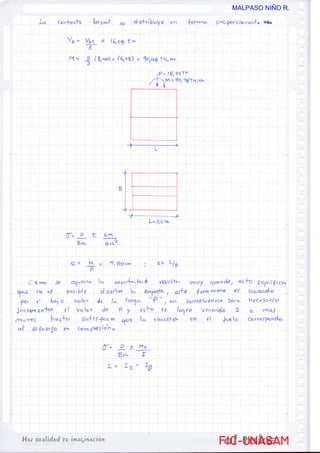 MALPASO NIÑO R.
La cortante basal se distribuye en forma proporcional.
V₀ = Vbc/3 = 16.08 Tn
M = 90.98 Tn.m
P = 18.25 Tn
M = 90.98 Tn.m
L
B
L = 3.0 m
σ = P/BxL ± 6M/BxL²
e = M/P = 4.00 m ; e < L/6
Como se aprecia la excentricidad resulta muy grande, esto significa
que no es posible diseñar la zapata, este fenómeno es causado
por el bajo valor de la carga "P", en consecuencia será necesario
incrementar el valor de P y esto se logra uniendo 2 o más
muros hasta satisfacer que la reacción en el suelo corresponda
al esfuerzo en compresión.
σ = P/BxL ± Mx/I
I =
Haz realidad tu imaginación
FIC-UNASAM